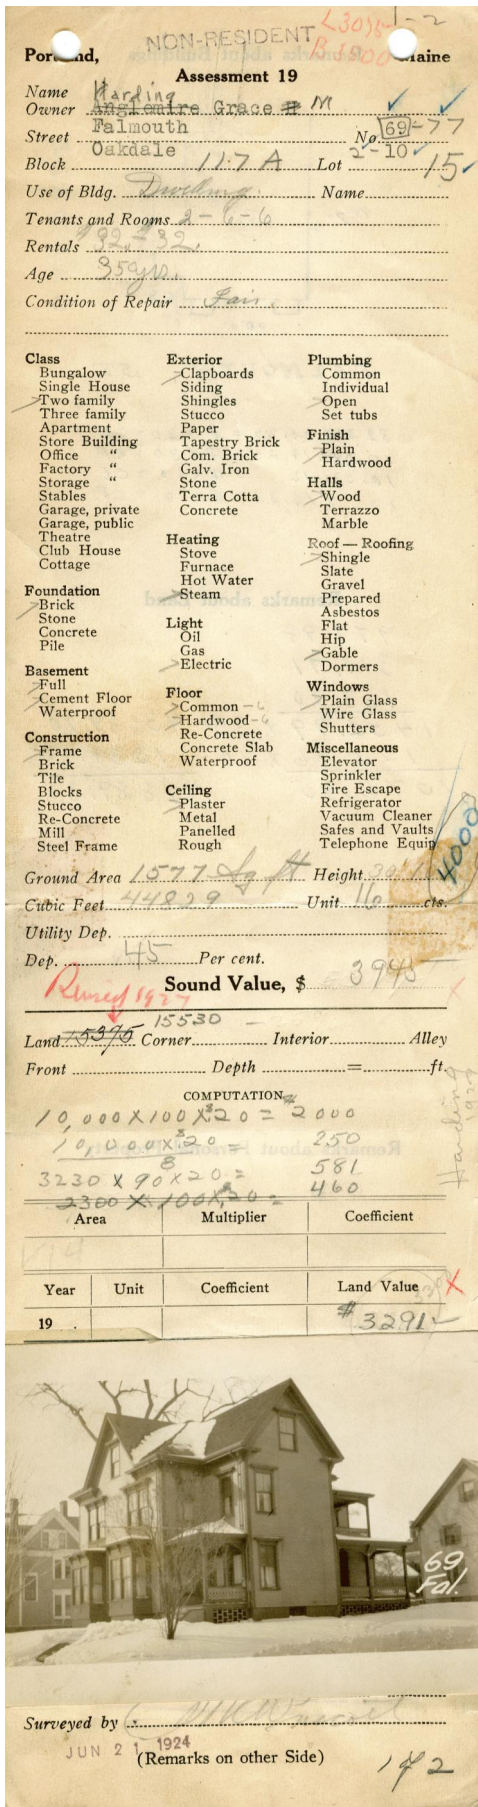 NON-RESIDENT
L3075
1-2
B 1500
Portland, Maine
Assessment 19
Name Harding
Owner Anglemire Grace M
Street Falmouth No 69-77
Oakdale
Block 117 A Lot 2-10-15
Use of Bldg. Dwelling. Name
Tenants and Rooms 2-6-6
Rentals 32.-32.
Age 35 yrs.
Condition of Repair Fair.
Class
Bungalow
Single House
Two family
Three family
Apartment
Store Building
Office "
Factory "
Storage "
Stables
Garage, private
Garage, public
Theatre
Club House
Cottage
Foundation
Brick
Stone
Concrete
Pile
Basement
Full
Cement Floor
Waterproof
Construction
Frame
Brick
Tile
Blocks
Stucco
Re-Concrete
Mill
Steel Frame
Exterior
Clapboards
Siding
Shingles
Stucco
Paper
Tapestry Brick
Com. Brick
Galv. Iron
Stone
Terra Cotta
Concrete
Heating
Stove
Furnace
Hot Water
Steam
Light
Oil
Gas
Electric
Floor
Common - 6
Hardwood - 6
Re-Concrete
Concrete Slab
Waterproof
Ceiling
Plaster
Metal
Panelled
Rough
Plumbing
Common
Individual
Open
Set tubs
Finish
Plain
Hardwood
Halls
Wood
Terrazzo
Marble
Roof — Roofing
Shingle
Slate
Gravel
Prepared
Asbestos
Flat
Hip
Gable
Dormers
Windows
Plain Glass
Wire Glass
Shutters
Miscellaneous
Elevator
Sprinkler
Fire Escape
Refrigerator
Vacuum Cleaner
Safes and Vaults
Telephone Equip
4000
Ground Area 1577 Sq ft Height
Cubic Feet 44829 Unit 16 cts.
Utility Dep.
Dep. 45 Per cent.
Sound Value, $ 3945
Revised 1927
15530
Land 15375 Corner Interior Alley
Front Depth = ft.
Harding
COMPUTATION
10,000 X 100 X 20 = 2000
10,000 X 20 = 250
3230 X 90 X 20 = 581
2300 X 100 X 20 = 460
Area Multiplier Coefficient
Year Unit Coefficient Land Value
19 $ 3291
69
Fal.
Surveyed by
JUN 21 1924
(Remarks on other Side)
1 of 2